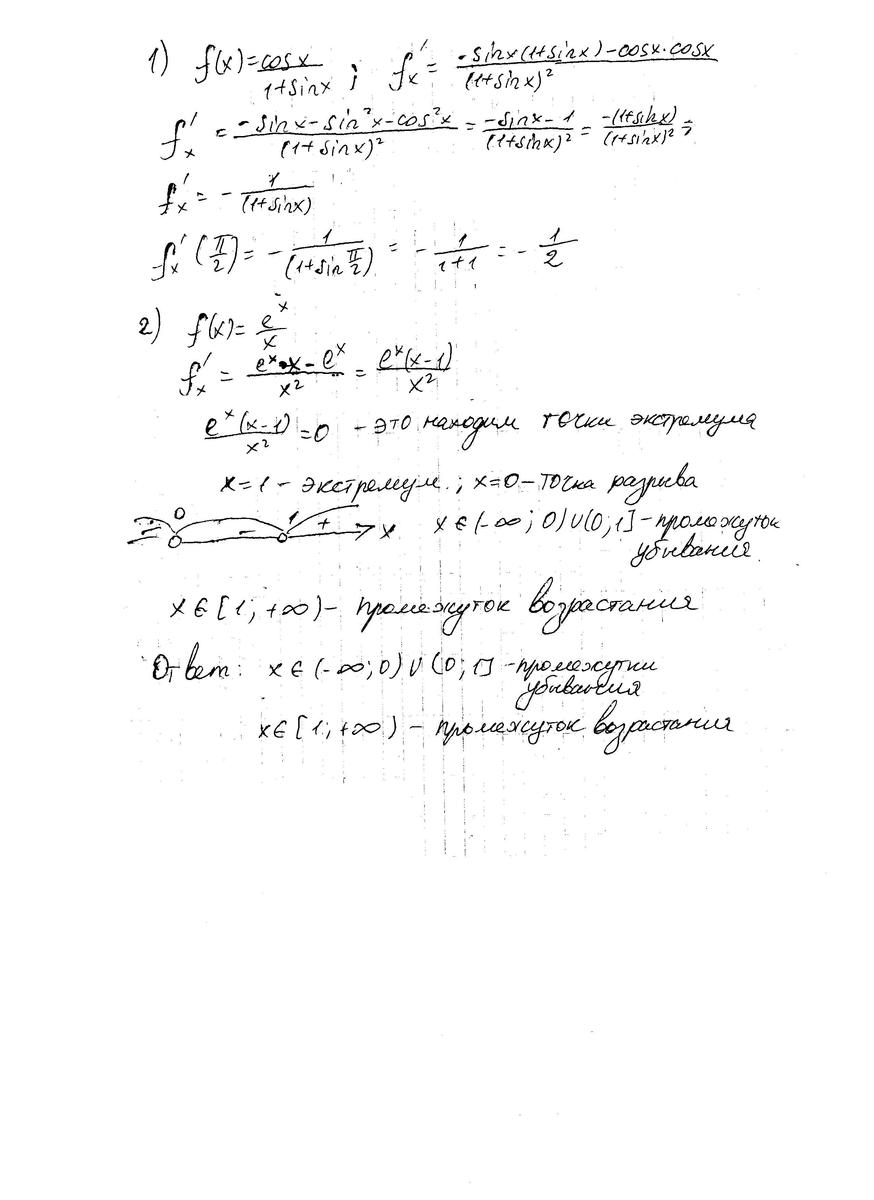 1) f(x)=cosx/(1+sinx) ; f'x = (-sinx(1+sinx)-cosx·cosx)/(1+sinx)²
f'x = (-sinx-sin²x-cos²x)/(1+sinx)² = (-sinx-1)/(1+sinx)² = -(1+sinx)/(1+sinx)² =
f'x = - 1/(1+sinx)
f'x (π/2) = - 1/(1+sin π/2) = - 1/(1+1) = - 1/2
2) f(x)= e^x/x
f'x = (e^x·x - e^x)/x² = e^x(x-1)/x²
e^x(x-1)/x² =0 - это находим точки экстремума
x=1 - экстремум ; x=0 - точка разрыва
0 - 1 + x x∈(-∞; 0)∪(0; 1] - промежуток
убывания
x∈[1; +∞) - промежуток возрастания
Ответ: x∈(-∞; 0)∪(0; 1] - промежутки
убывания
x∈[1; +∞) - промежуток возрастания